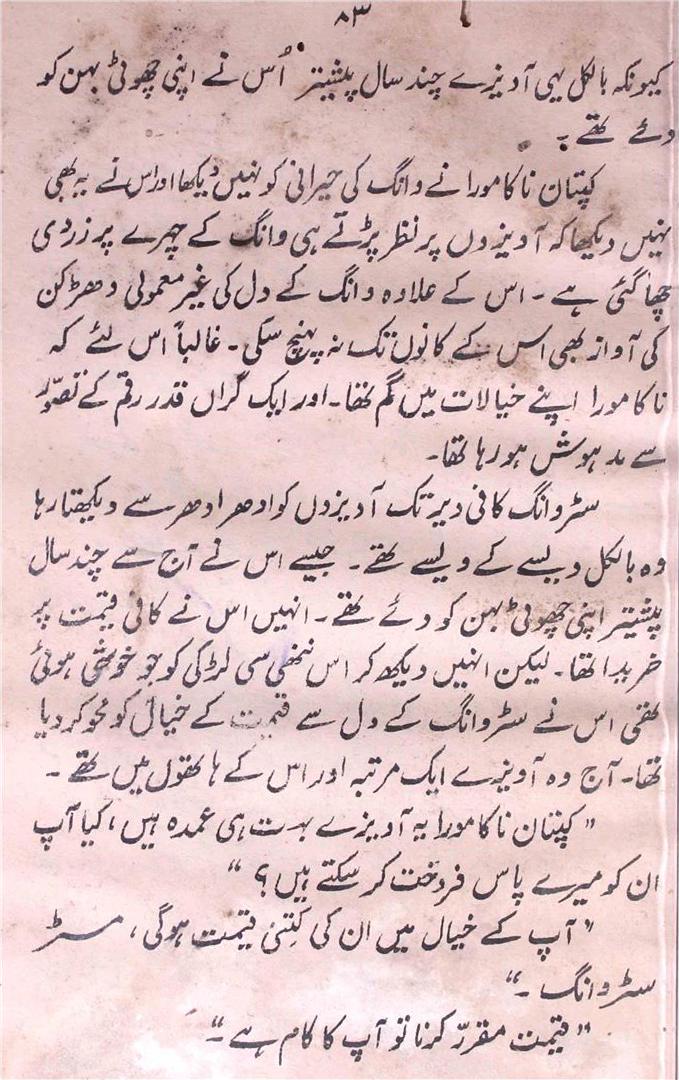 ۸۳
کیونکہ بالکل یہی آویزے چند سال پیشتر اُس نے اپنی چھوٹی بہن کو
دئے تھے۔
کپتان ناکامورا نے وانگ کی حیرانی کو نہیں دیکھا اور اس نے یہ بھی
نہیں دیکھا کہ آویزوں پر نظر پڑتے ہی وانگ کے چہرے پر زردی
چھا گئی ہے ۔ اس کے علاوہ وانگ کے دل کی غیر معمولی دھڑکن
کی آواز بھی اس کے کانوں تک نہ پہنچ سکی ۔ غالباً اس لئے کہ
ناکامورا اپنے خیالات میں گم تھا ۔ اور ایک گراں قدر رقم کے تصوّر
سے مدہوش ہو رہا تھا۔
سٹروانگ کافی دیر تک آویزوں کو ادھر ادھر سے دیکھتا رہا
وہ بالکل ویسے کے ویسے تھے ۔ جیسے اس نے آج سے چند سال
پیشتر اپنی چھوٹی بہن کو دئے تھے ۔ انہیں اس نے کافی قیمت پر
خریدا تھا ۔ لیکن انہیں دیکھ کر اس ننھی سی لڑکی کو جو خوشی ہوئی
تھی اس نے سٹروانگ کے دل سے قیمت کے خیال کو محو کر دیا
تھا ۔ آج وہ آویزے ایک مرتبہ اور اس کے ہاتھوں میں تھے ۔
"کپتان ناکامورا یہ آویزے بہت ہی عمدہ ہیں ، کیا آپ
ان کو میرے پاس فروخت کر سکتے ہیں ؟"
"آپ کے خیال میں ان کی کتنی قیمت ہوگی ، مسٹر
سٹروانگ ۔"
"قیمت مقرّر کرنا تو آپ کا کام ہے ۔"